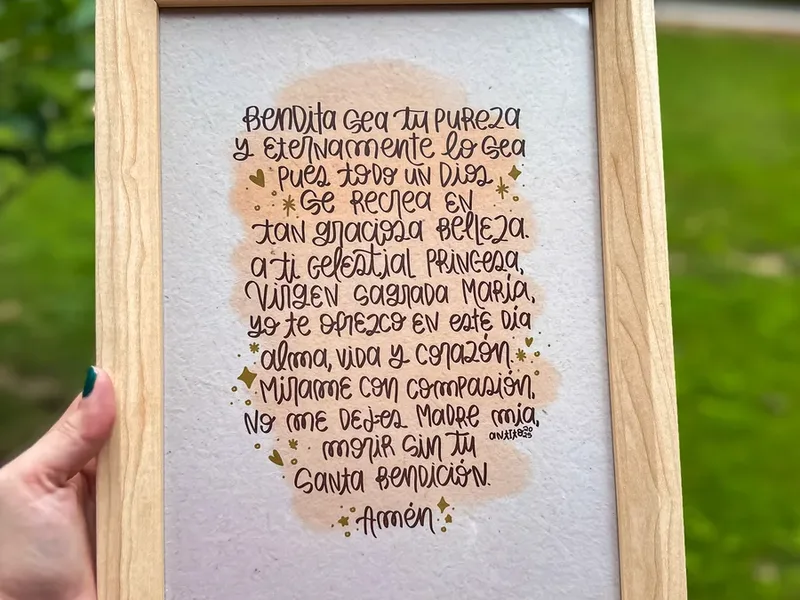 Bendita sea tu pureza
y eternamente lo sea
pues todo un Dios
se recrea en
tan graciosa belleza.
a ti celestial princesa,
Virgen sagrada María,
yo te ofrezco en este día
alma, vida y corazón.
Mírame con compasión.
No me dejes Madre mía,
morir sin tu
Santa bendición.
Amén